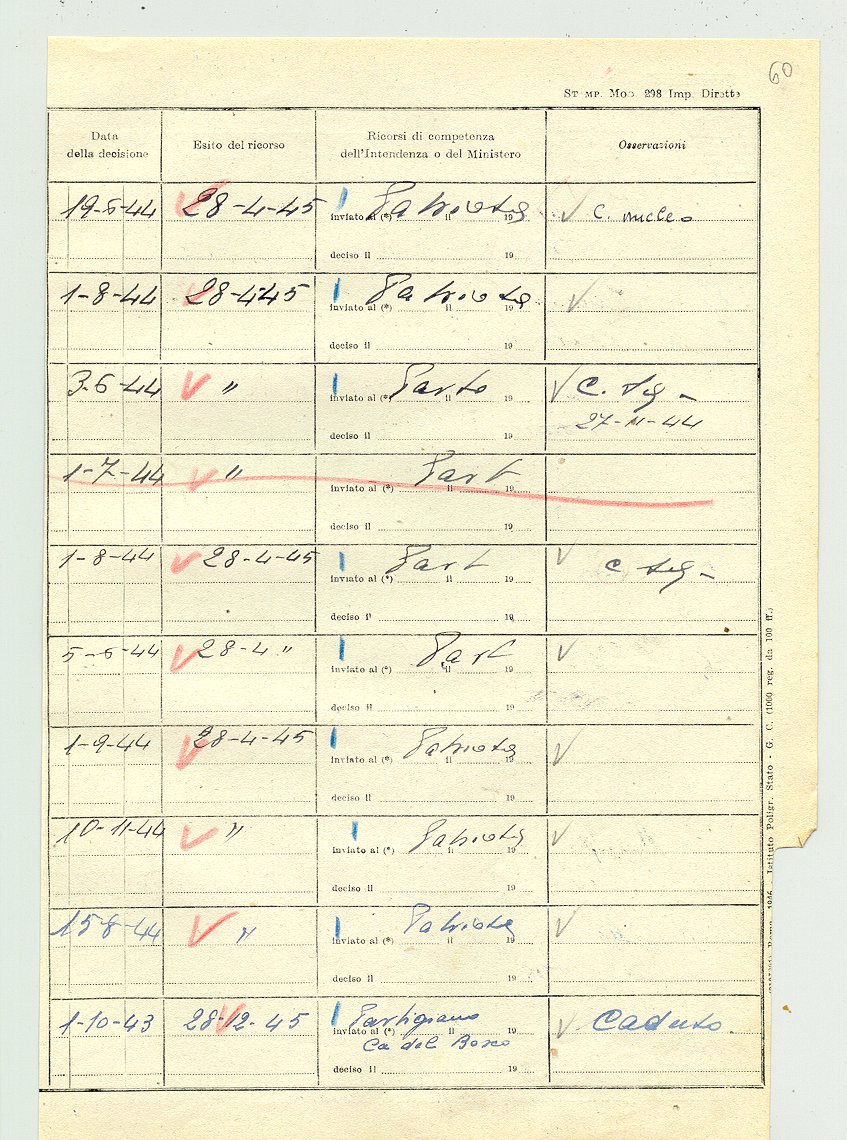 60
ST MP. Mod. 298 Imp. Dirette
Data della decisione
Esito del ricorso
Ricorsi di competenza dell'Intendenza o del Ministero
Osservazioni
19-6-44 28-4-45 Patriota C. nucleo
inviato al (*) il 19
deciso il 19
1-8-44 28-4-45 Patriota
inviato al (*) il 19
deciso il 19
3-6-44 " Parto C. Sq.
inviato al (*) 19
27-11-44
deciso il 19
1-7-44 " Part
inviato al (*) il 19
deciso il 19
1-8-44 28-4-45 Part C. sq.
inviato al (*) il 19
deciso il 19
5-6-44 28-4 " Part
inviato al (*) il 19
deciso il 19
1-9-44 28-4-45 Patriota
inviato al (*) il 19
deciso il 19
10-11-44 " Patriota
inviato al (*) il 19
deciso il 19
15-8-44 " Patriota
inviato al (*) il 19
deciso il 19
1-10-43 28-12-45 Partigiano Caduto.
inviato al (*) il 19
Ca del Bosco
deciso il 19
Istituto Poligr. Stato - G. C. (1000 reg. da 100 ff.)